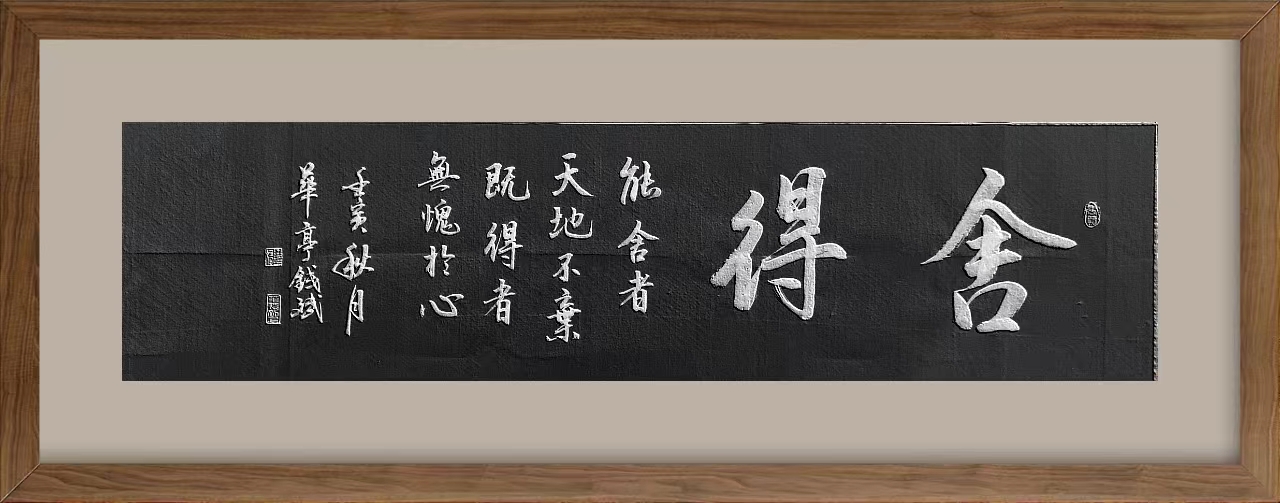 舍得
能舍者
天地不棄
既得者
無愧於心
壬寅秋月
華亭鉞斌